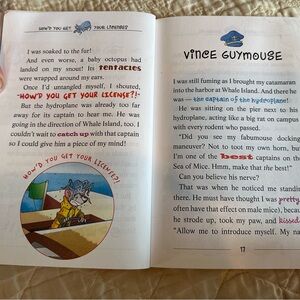 HOW'D YOU GET YOUR LICENSE?!
I was soaked to the fur!
And even worse, a baby octopus had
landed on my snout! Its tentacles
were wrapped around my ears.
Once I'd untangled myself, I shouted,
"HOW'D YOU GET YOUR LICENSE?!"
But the hydroplane was already too far
away for its captain to hear me. He was
going in the direction of Whale Island, too. I
couldn't wait to catch up with that captain
so I could give him a piece of my mind!
HOW'D YOU GET YOUR LICENSE?!
VINCE GUYMOUSE
I was still fuming as I brought my catamaran
into the harbor at Whale Island. And there he
was — the captain of the hydroplane!
He was sitting on the pier next to his
hydroplane, acting like a big rat on campus
with every rodent who passed.
"Did you see my fabumouse docking
maneuver? Not to toot my own horn, but
I'm one of the best captains on the
Sea of Mice. Hmm, make that the best!"
Can you believe his nerve?
That was when he noticed me standing
there. He must have thought I was pretty
often have that effect on male mice), because
he strode up, took my paw, and kissed
"Allow me to introduce myself. My na
17